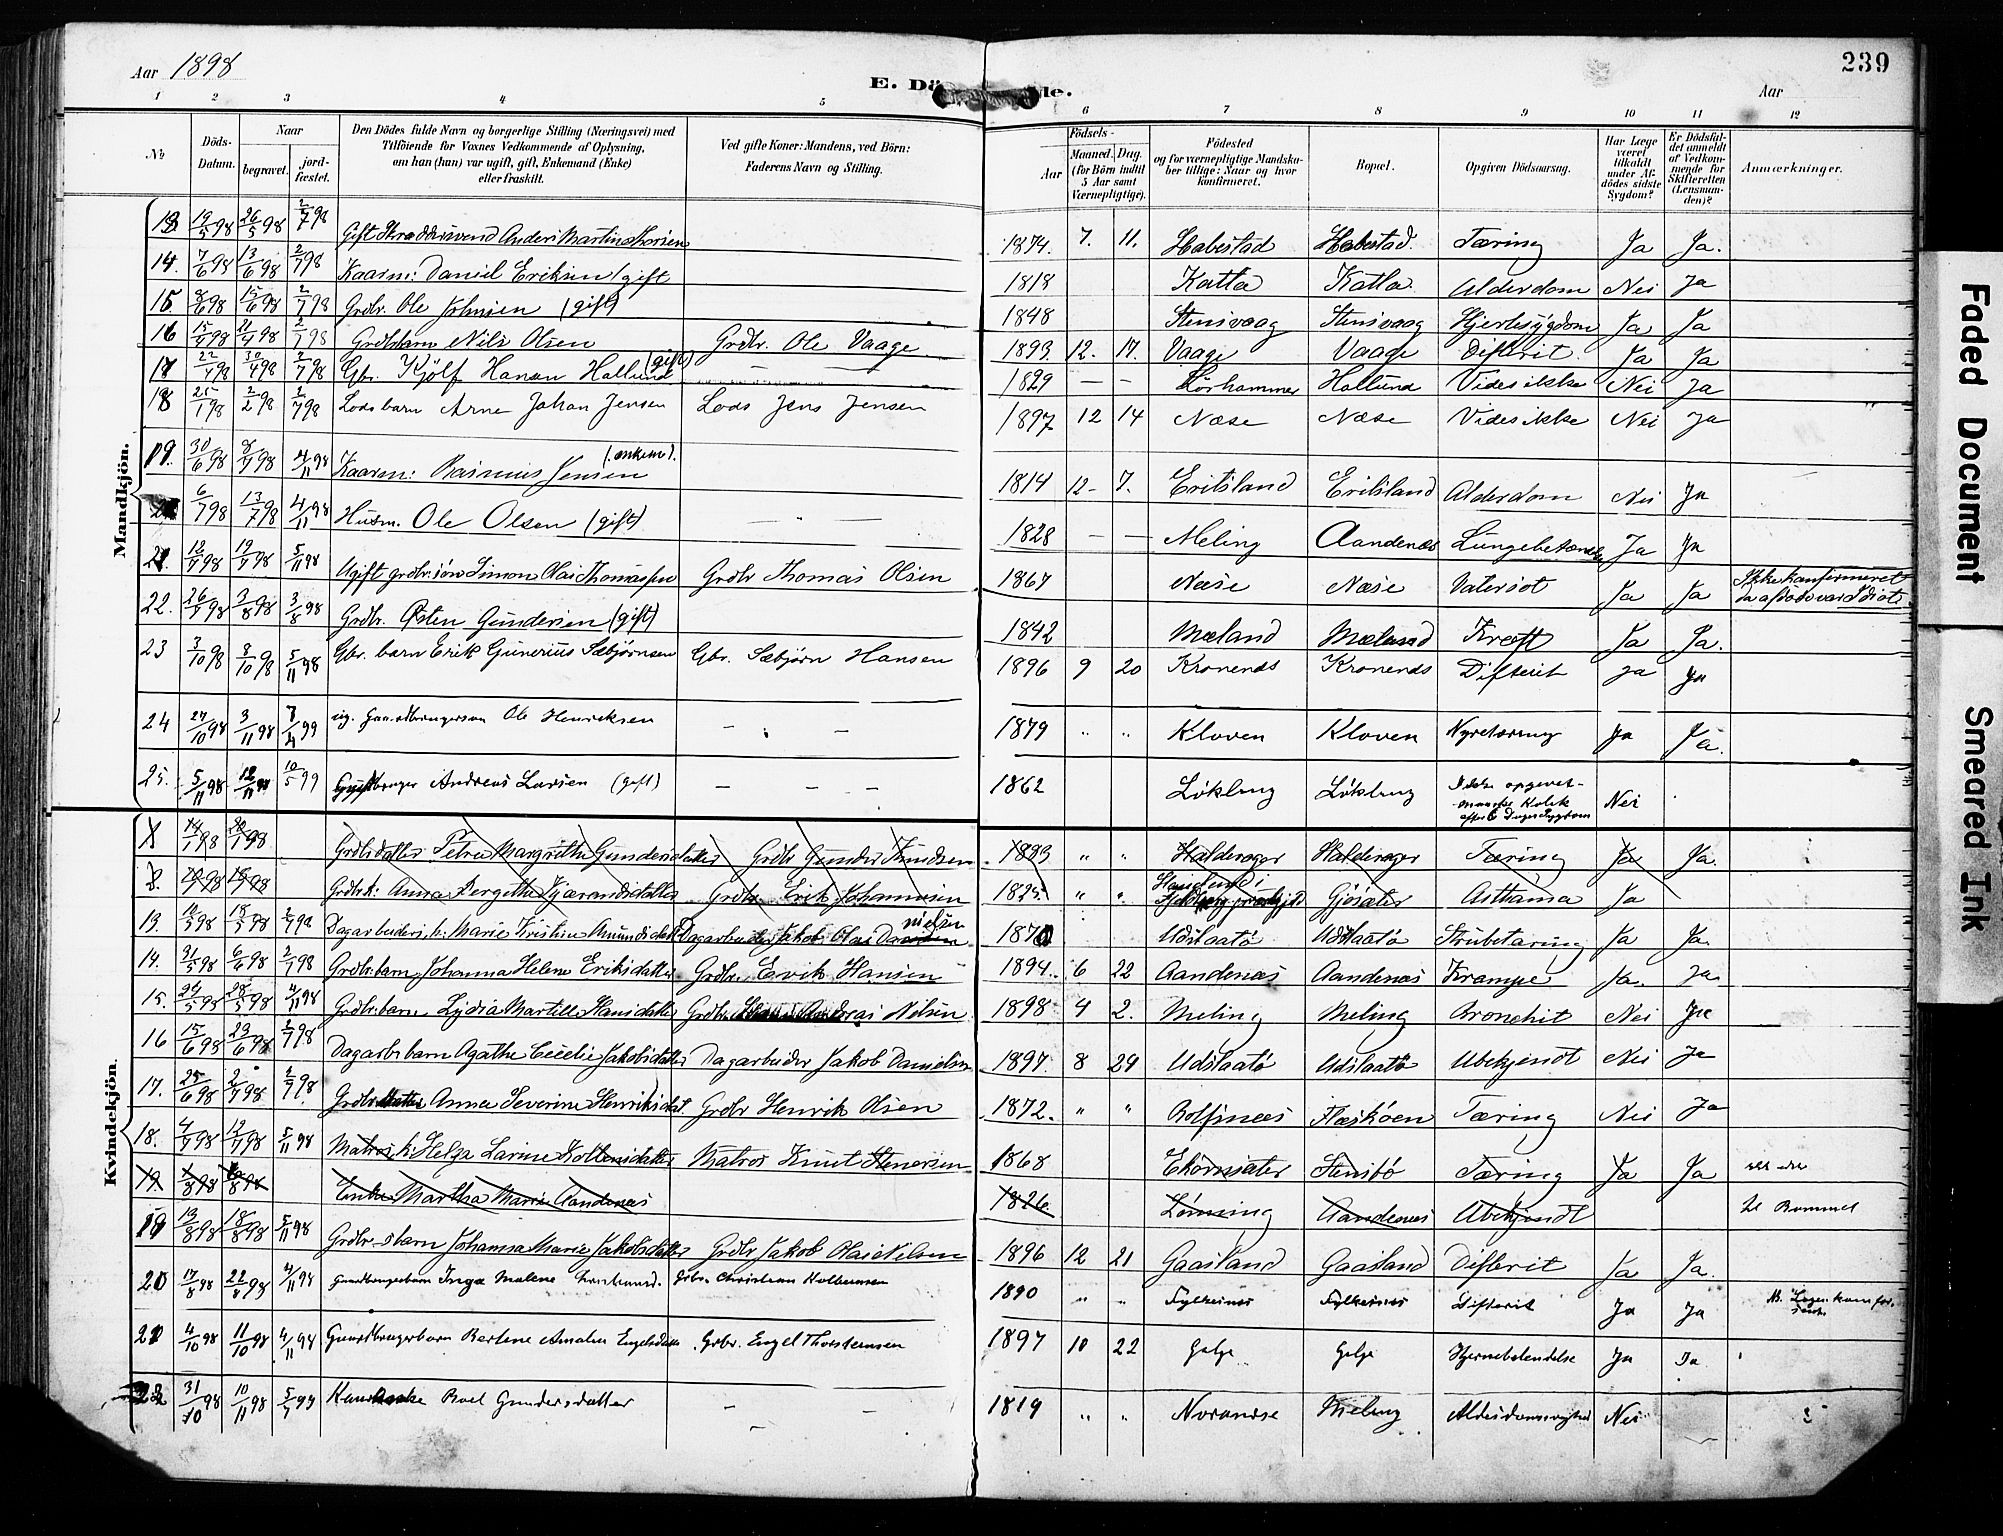 Aar 1898
E. Dö de.
239
Aar
1 2 3 4 5 6 7 8 9 10 11 12
No
Döds-Datum.
Naar
begravet.
jord-fæstet.
Den Dödes fulde Navn og borgerlige Stilling (Næringsvei) med
Tilföiende for Voxnes Vedkommende af Oplysning,
om han (hun) var ugift, gift, Enkemand (Enke)
eller fraskilt.
Ved gifte Koner: Mandens, ved Börn:
Faderens Navn og Stilling.
Födsels-
Aar
Maaned. Dag.
(for Börn indtil
5 Aar samt
Værnepligtige).
Födested
og for værnepligtige Mandska-
ber tillige: Naar og hvor
konfirmeret.
Bopæl.
Opgiven Dödsaarsag.
Har Læge
været
tilkaldt
under Af-
dödes sidste
Sygdom?
Er Dödsfal-
det anmeldt
af Vedkom-
mende for
Skifteretten
(Lensman-
den)?
Anmærkninger.
Mandkjön.
13 19/5 98 26/5 98 2/7 98 Gift Anders Martin 1874. 7. 11. Habestad Habestad. Tæring Ja Ja.
14. 7/6 98 13/6 98 2/7 98 Kaarm: Daniel Eriksen (gift 1818 Katla Katla Alderdom Nei Ja
15. 8/6 98 15/6 98 2/7 98 Grdbr. Ole Johnsen (gift) 1848 Stensvaag Stensvaag Hjertesygdom Ja Ja
16 15/4 98 21/4 98 2/7 98 Grdbrbarn Nils Olsen Grdbr. Ole Vaage 1893. 12. 17. Vaage Vaage Difterit. Ja Ja
17 22/4 98 30/4 98 2/7 98 Gbr. Kjölf Hanan Hallund (gift) — — 1829 — — Hallund Vides ikke Nei Ja
18 25/1 98 2/2 98 2/7 98 Lodsbarn Arne Johan Jensen Lods Jens Jensen 1897 12 14 Næse Næse Vides ikke Nei Ja
19. 30/6 98 8/7 98 4/11 98 Kaarm: Rasmus Jensen (enkem). 1814 12- 7. Eritsland Eritsland Alderdom Nei Ja
6/7 98 13/7 98 4/11 98 Husm. Ole Olsen (gift) — — 1828 — — Meling Aandenæs Lungebetændelse Ja Ja
21. 12/7 98 19/7 98 5/11 98 Ugift grdbr.sön Simon Olai Thomassen Grdbr Thomas Olsen 1867 Næse Næse Vatersot Ja Ja Ikke konfirmeret da afdøde var Idiot.
22. 26/7 98 3/8 98 3/8 98 Grdbr. Østen Gundersen (gift) 1842 Mæland Mæland Kræft Ja Ja.
23 3/10 98 8/10 98 5/11 98 Gbr. barn Erik Gunerius Sæbjørnsen Gbr. Sæbjørn Hansen 1896 9 20 Kronenes Kronenes Difterit Ja Ja
24 27/10 98 3/11 98 7/4 99 ug. Gaardbrugerson Ole Henriksen — — 1879 " " Kloven Kloven Nyretæring Ja Ja.
25. 5/11 98 12/11 98 10/5 99 Gaardbruger Andreas Larsen (gift) — — — 1862 Løkling Løkling Nei
Kvindekjön.
14/1 98 20/1 98 Grdbrdatter Petra Margrethe Gundersdatter Grdbr Gunder Knudsen 1893 " " Halderager Halderager Tæring Ja Ja.
Grdbrk: Anna Bergitha Grdbr. Erik Johannesen 1825. " " Gjøsæter Asthama Ja
13. 10/5 98 18/5 98 2/7 98 Dagarbeiders k. Marie Kristine Amundsdatter Dagarbeider Jakob Olai Danielsen 1870 Udslaatø Udslaatø Strubetæring Ja Ja.
14. 31/5 98 6/6 98 2/7 98 Grdbr.barn Johanna Helene Eriksdatter Grdbr. Ervik Hansen 1894. 6 22 Aandenæs Aandenæs Krampe Ja. Ja
15. 24/5 98 28/5 98 4/11 98 Grdbr.barn Lydia Martille Hansdatter Grdbr. Hans Andreas Nilsen 1898 4 2. Meling Meling Bronchit Nei Ja
16 15/6 98 23/6 98 2/7 98 Dagarb.barn Agathe Cecelie Jakobsdatter Dagarbeider Jakob Danielsen 1897. 8 29 Udslaatø Udslaatø Ubekjendt Nei Ja
17. 25/6 98 2/7 98 2/7 98 Grdbrdatter Anna Severine Henriksdat. Grdbr Henrik Olsen 1872. " " Rolfsnæs Flæskøen Tæring Nei Ja
18. 4/7 98 12/7 98 5/11 98 Matros k. Helga Larine Matros Knut Stenersen 1868 Ekornsæter Stensbø Tæring Ja Ja
19. 1/8 98 6/8 98 Enke Martha Marie Aandenæs 1826. Lønning Aandenæs Ubekjendt Bommel
19 13/8 98 18/8 98 5/11 98 Grdbr.sbarn Johanna Marie Jakobsdatter Grdbr Jakob Olai Nilsen 1896 12 21 Gaasland Gaasland Difterit Ja Ja.
20 17/8 98 22/8 98 4/11 98 Gaardbrugerbarn Inga Malene Grbr. Christian 1890 " " Fylkesnes Fylkesnes Difterit Ja Ja NB. Lægen kom for sent.
21 4/10 98 11/10 98 4/11 98 Gaardbrugerbarn Bertine Amalia Engelsdatter Grbr. Engel Thorstensen 1897 10 22 Golge Golge Hjernebetendelse Ja Ja.
22 31/10 98 10/11 98 5/7 99 Boel Gundersdatter — — 1819 " " Meling Nei
Faded Document
Smeared Ink